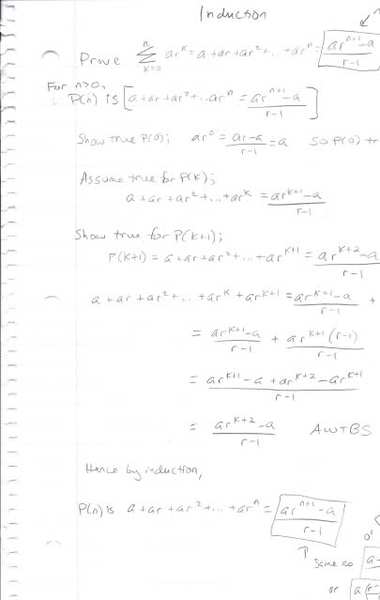 Induction
Prove \sum_{k=0}^{n} ar^k = a + ar + ar^2 + ... + ar^n = \frac{ar^{n+1} - a}{r-1}
For n>0,
P(n) is [a + ar + ar^2 + ... ar^n = \frac{ar^{n+1} - a}{r-1}]
Show true P(0); ar^0 = \frac{ar - a}{r-1} = a So P(0) tr
Assume true for P(k);
a + ar + ar^2 + ... + ar^k = \frac{ar^{k+1} - a}{r-1}
Show true for P(k+1);
P(k+1) = a + ar + ar^2 + ... + ar^{k+1} = \frac{ar^{k+2} - a}{r-1}
a + ar + ar^2 + ... + ar^k + ar^{k+1} = \frac{ar^{k+1} - a}{r-1} +
= \frac{ar^{k+1} - a}{r-1} + \frac{ar^{k+1}(r-1)}{r-1}
= \frac{ar^{k+1} - a + ar^{k+2} - ar^{k+1}}{r-1}
= \frac{ar^{k+2} - a}{r-1} AWTBS
Hence by induction,
P(n) is a + ar + ar^2 + ... + ar^n = \frac{ar^{n+1} - a}{r-1}
↑ Same as
or